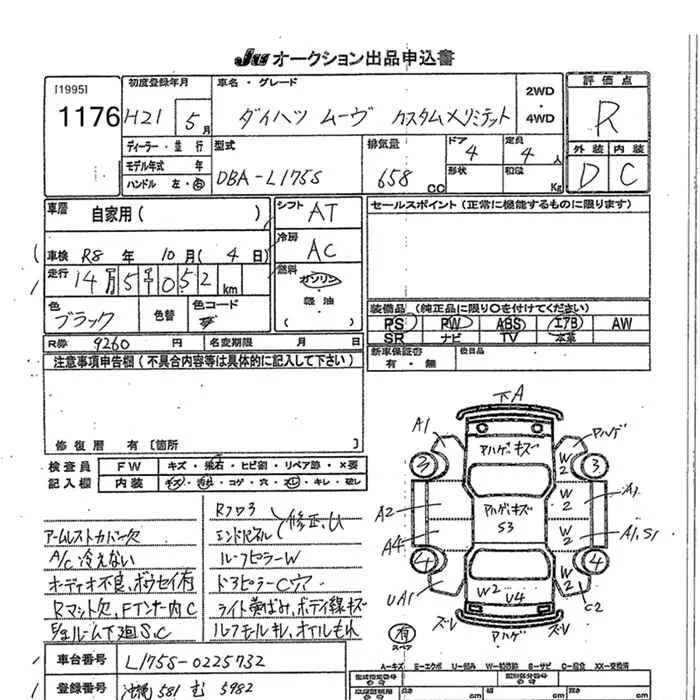 JU オークション出品申込書
[1995]
1176
初度登録年月
H21 5月
車名・グレード
ダイハツ ムーヴ カスタムメリミテット
2WD
・
4WD
評価点
R
外装 内装
D C
ディーラー・並行
モデル年式 年
ハンドル 左・右
型式
DBA-L175S
排気量
658 CC
ドア
4
定員
4 人
形状
Kg
車歴
自家用( )
シフト AT
セールスポイント(正常に機能するものに限ります)
車検 R8 年 10 月( 4 日)
冷房 AC
走行 14万5千052 km
燃料
ガソリン
・
軽油
( )
色
ブラック
色替
色コード
装備品(純正品に限り〇を付けてください)
PS PW ABS エアB AW
SR ナビ TV 本革
R券 9260 円
名変期限 月 日
新車保証書
有・無
後日品
注意事項申告欄(不具合内容等は具体的に記入して下さい)
修復歴 有[箇所 ]
検査員
記入欄
FW キズ・飛石・ヒビ割・リペア跡・×要
内装 キズ・汚れ・コゲ・穴・スレ・キレ・破レ
アームレストカバー欠
A/C 冷えない
オーディオ不良、ボウセイ有
Rマット欠、Fインナー内C
S.C
Rフロア
エンドパネル 修正、U
ルーフピラーW
ドアピラーCウア
ライト黄ばみ、ボディ線キズ
ルーフモールキレ、オイルもれ
下A
A1
アハゲ・キズ
アハゲ
3
3
W2
A2
アハゲ・キズ
S3
W2
A1
A4
W2
A1, S1
4
4
UA1
W2
U4
W2
C2
ズレ
アハゲ
ズレ
有
スペア
車台番号 L175S-0225732
登録番号 沖縄 581 む 5982
A-キズ E-エクボ U-凹み W-補修跡 S-サビ C-腐食 XX-交換済